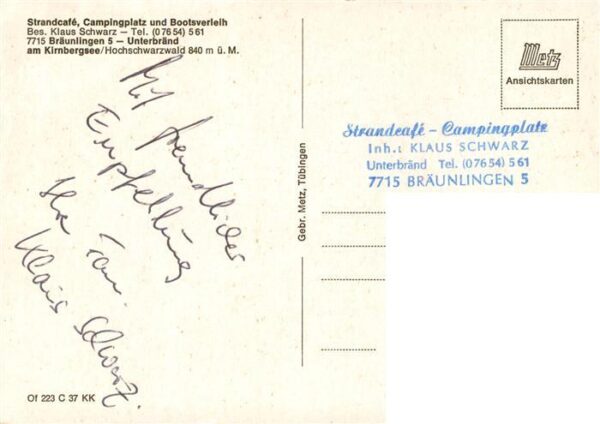 Strandcafé, Campingplatz und Bootsverleih
Bes. Klaus Schwarz – Tel. (0 76 54) 5 61
7715 Bräunlingen 5 – Unterbränd
am Kirnbergsee/Hochschwarzwald 840 m ü. M.
Mit freundlicher
Empfehlung
Ihr Fam.
Klaus Schwarz.
Of 223 C 37 KK
Gebr. Metz, Tübingen
Metz
Ansichtskarten
Strandcafé - Campingplatz
Inh.: KLAUS SCHWARZ
Unterbränd Tel. (07654) 5 61
7715 BRÄUNLINGEN 5